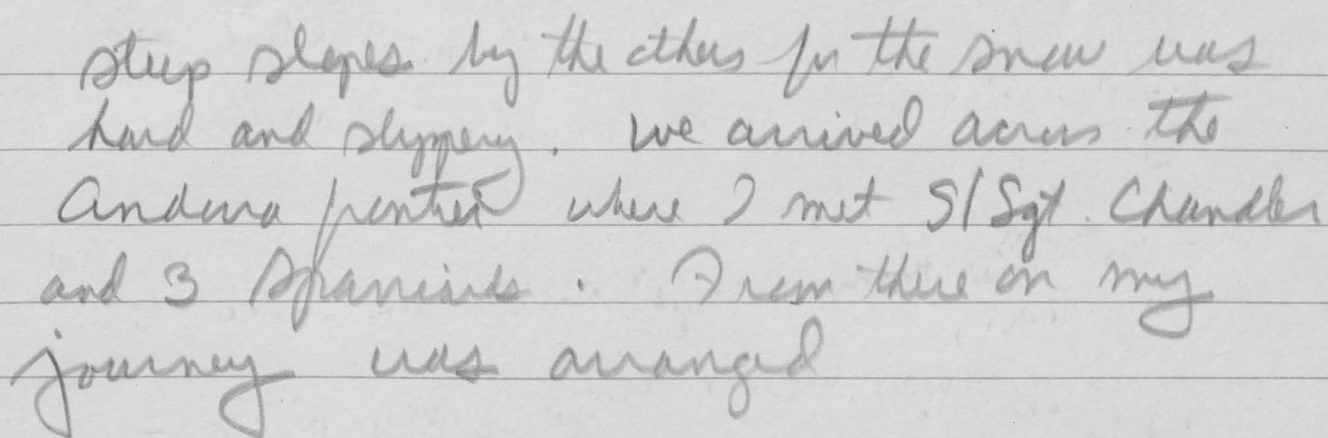 steep slopes by the others for the snow was
hard and slippery. We arrived across the
Andorra frontier where I met S/Sgt. Chandler
and 3 Spaniards. From there on my
journey was arranged